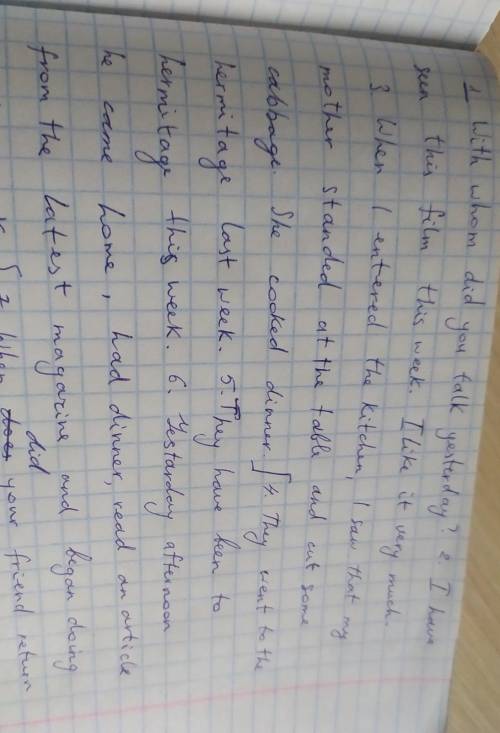 1 With whom did you talk yesterday? 2. I have
seen this film this week. I like it very much.
3 When I entered the kitchen, I saw that my
mother standed at the table and cut some
cabbage. She cooked dinner. 4. They went to the
hermitage last week. 5. They have been to
hermitage this week. 6. Yestarday afternoon
he came home, had dinner, read an article
from the latest magazine and began doing
7 When did your friend return